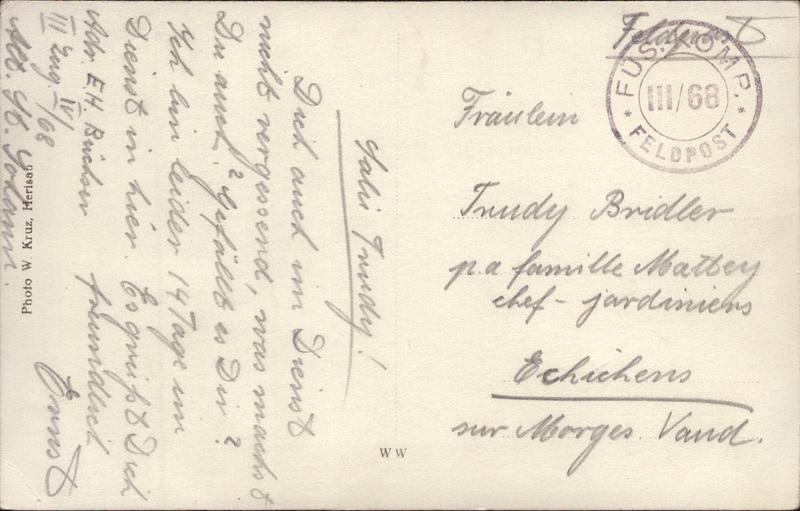 Feldpost
FÜS. KOMP.
III/68
* FELDPOST *
Fräulein
Trudy Bridler
p.a famille Mattey
chef - jardiniers
Echichens
sur Morges. Vaud.
Salü Trudy!
Dich auch im Dienst
nicht vergessend, was machst
Du auch? Gefällt es Dir?
Ich bin leider 14 Tage im
Dienst in hier. Es grüßt Dich
freundlich
Ernst
Adr. E. H.
III Eng. IV/68
St. Johann.
Photo W. Kruz, Herisau
WW